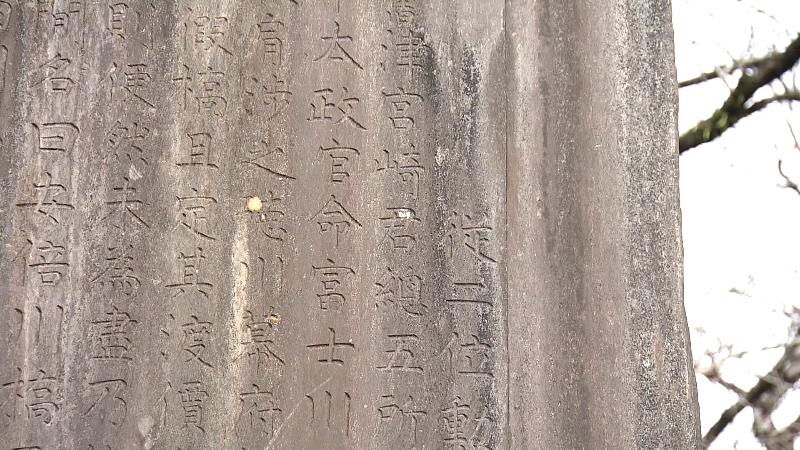 従二位勲
津宮崎君總五所
太政官命富士川
育渉之徳川幕府
假橋且定其渡價
則便然未為盡乃
間名曰安倍川橋